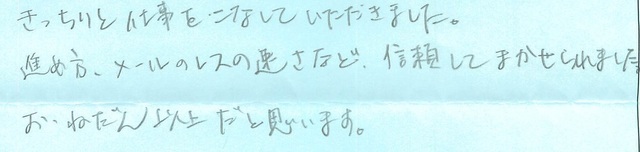 きっちりと仕事をこなしていただきました。
進め方、メールのレスの速さなど、信頼してまかせられました
お、ねだん以上だと思います。